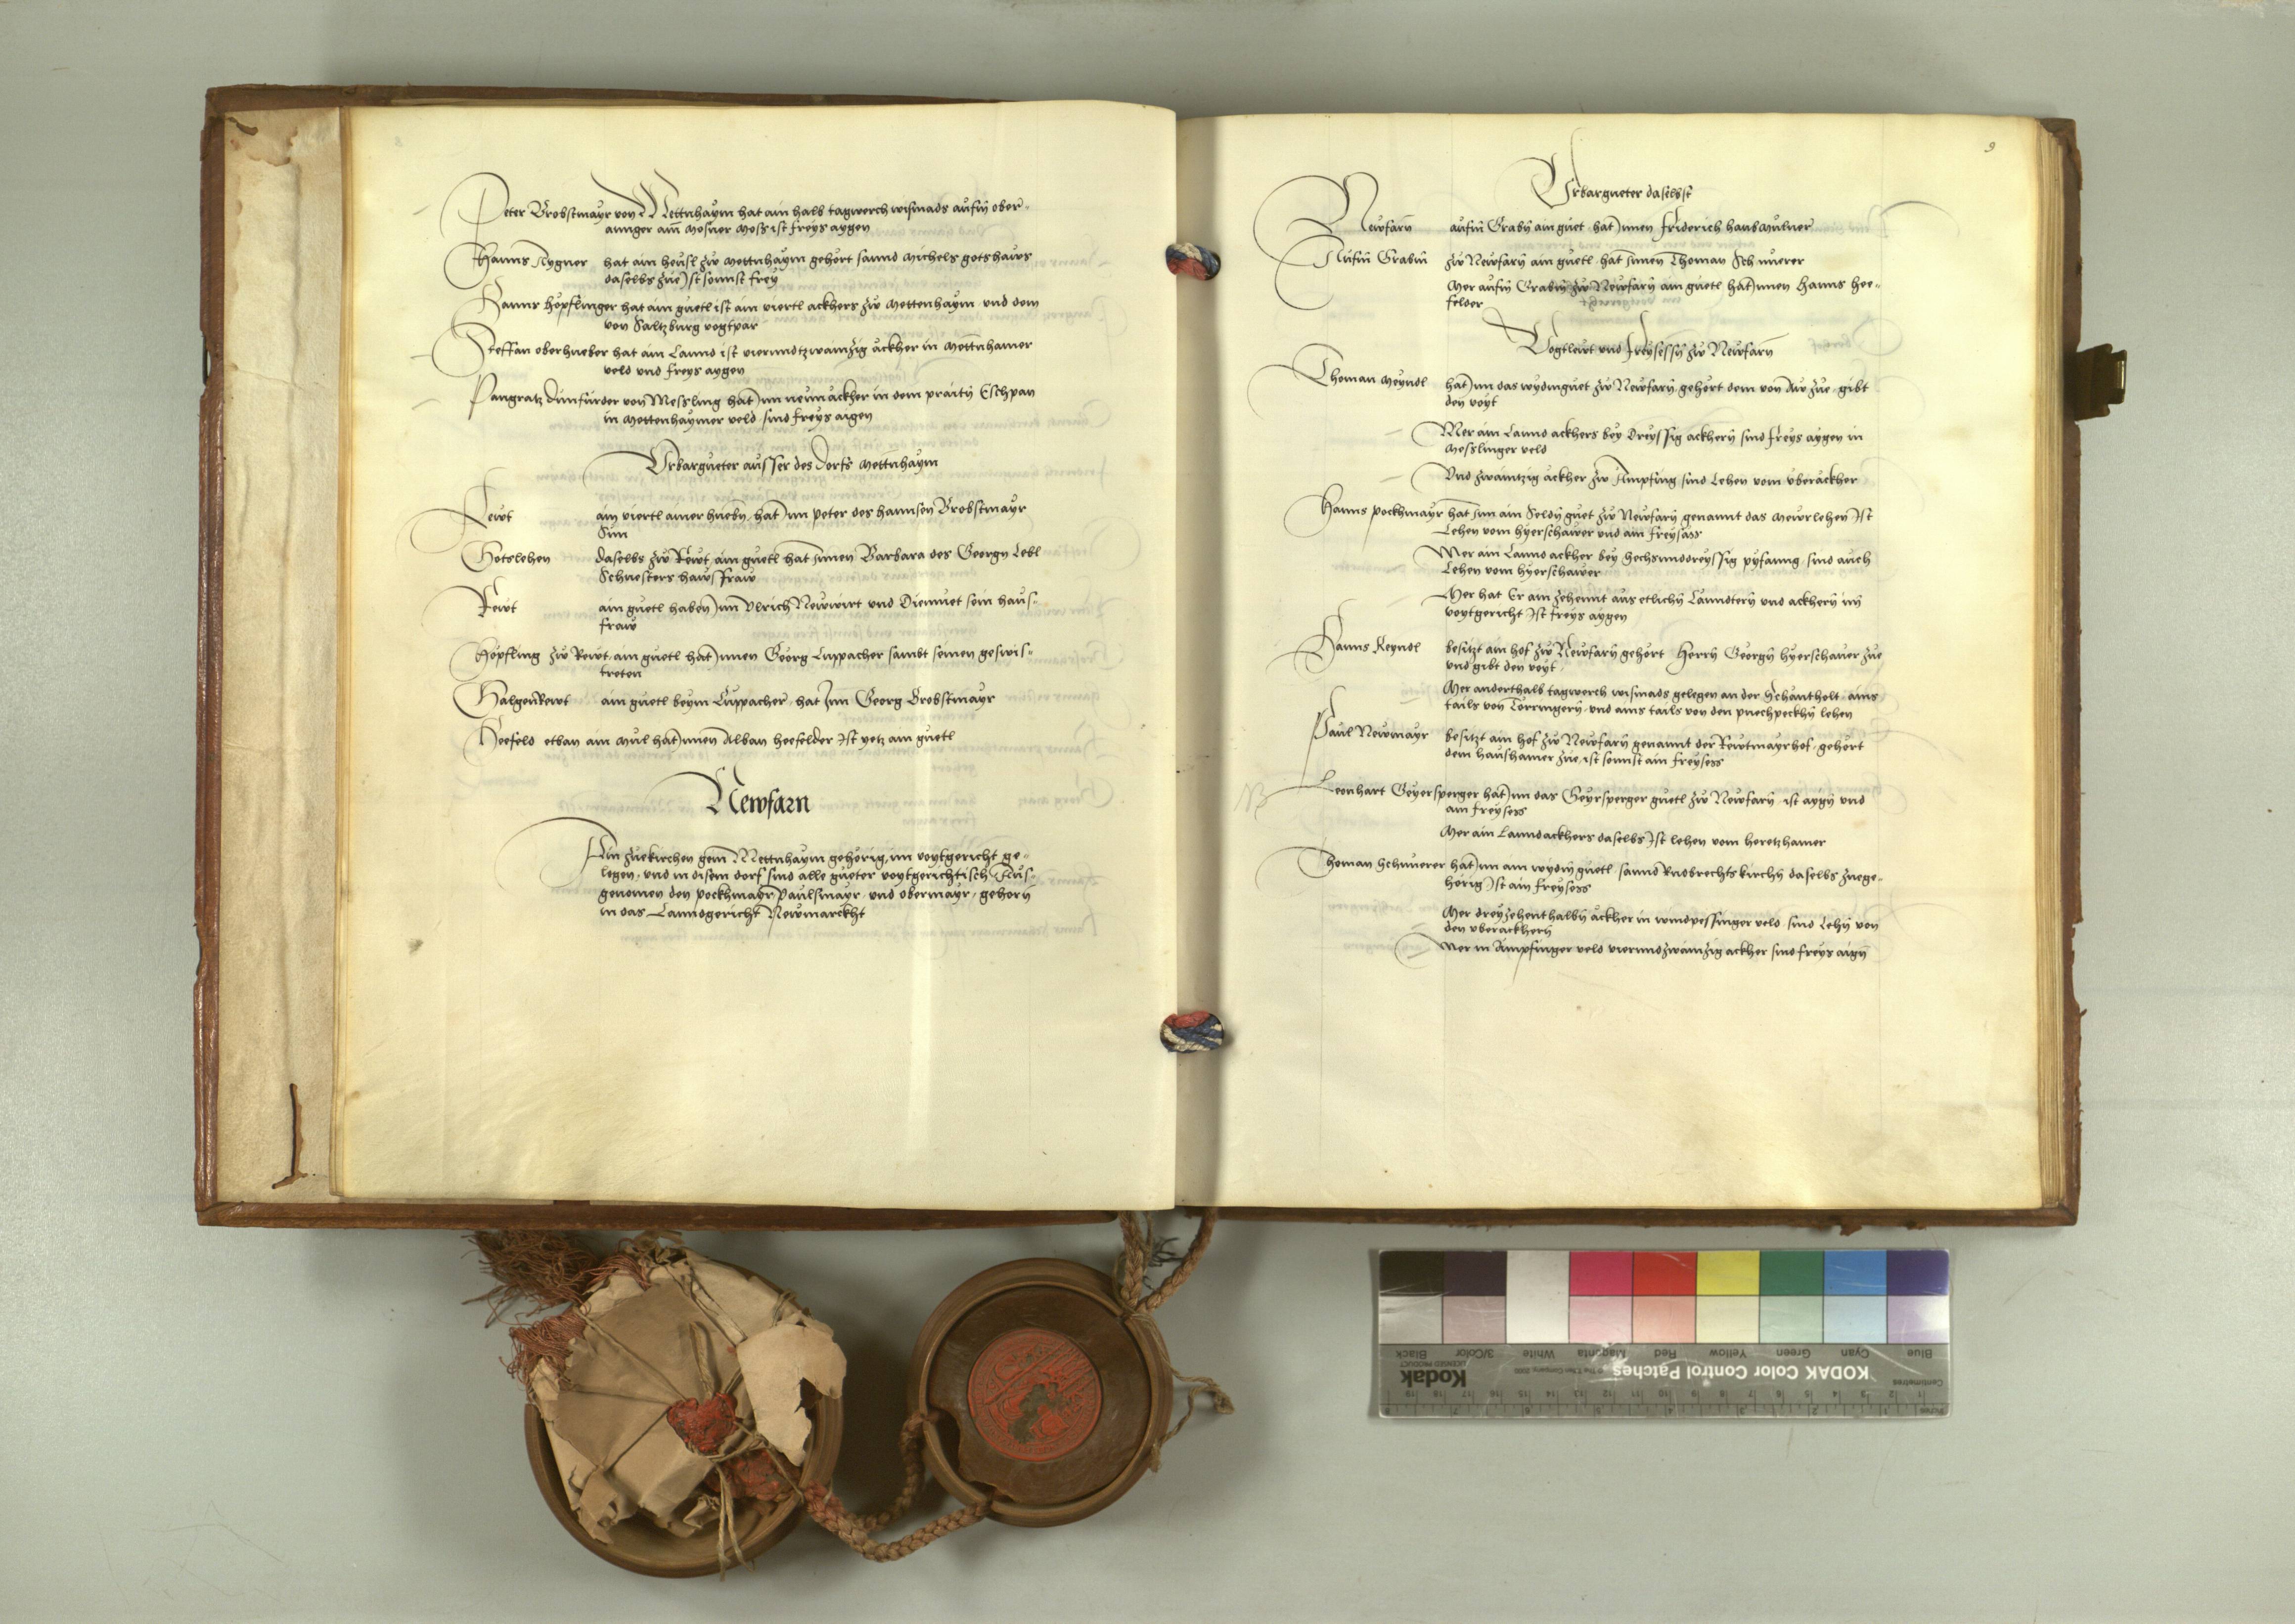 8
Peter Brobstmayr von Mettnhaym hat ain halb tagwerch wismads aufm ober-
annger am Mosner Moss ist freys aygen
Hanns Aygner hat ain heusl zw Mettnhaym gehört sannd Michels gotshaws
daselbs zue Ist sonnst frey
Hanns Höpflinger hat ain guetl ist ain viertl ackhers zw Mettenhaym und dem
von Saltzburg vogtpar
Steffan oberhueber hat ain Lannd ist vierundtzwainzig äckher in Mettnhamer
veld und freys aygen
Pangratz Dünfürder von Messling hat Inn neun äckher in dem praitn Eschpan
in Mettenhaymer veld sind freys aigen
Urbargueter ausser des Dorfs Mettnhaym
Rewt ain viertl ainer huebn hat Inn peter des hannsen Brobstmayr
Sun
Gotslehen daselbs zw Rewt ain guetl hat Innen Barbara des Georgn Lebl
Schuesters hawsfraw
Rewt ain guetl haben Inn Ulrich Newwirt und Diemuet sein haus-
fraw
Höpfling zw Rewt ain guetl hat Innen Georg Luppacher sambt seinen geswis-
treten
Halgenrewt ain guetl beym Luppacher hat Inn Georg Brobstmayr
Heefeld etban ain mul hat Innen Alban heefelder Ist yetz ain guetl
Newfarn
Ain zuekirchen gem Mettnhaym gehörig im voytgericht ge-
legen, und in disem dorf sind alle gueter voytgerichtisch Aus-
genomen den pockhmayr Paulsmayr und obermayr, gehorn
in das Lanndgericht Newmarckht
9
Urbargueter daselbst
Newfarn aufm Grabn ain guet hat Innen Friderich hausmulner
Aufm Grabm zw Newfarn ain guetl hat Innen Thoman Schnuerer
Mer aufm Grabm zw Newfarn ain guetl hat Innen Hanns hee-
felder
Vogtlewt und freysessn zw Newfarn
Thoman Meyndl hat Inn das wydmguet zw Newfarn gehört dem von Aw zue, gibt
den voyt
Mer ain Lannd ackhers bey Dreyssig ackhern sind freys aygen in
Messlinger veld
Und zwaintzig äckher zw Ampfing sind Lehen vom überäckher
Hanns pockhmayr hat Inn ain Seldn guet zw Newfarn genannt das Mewrlehen Ist
Lehen vom hyerschawer und ain freysäss
Mer ain Lannd äckher bey Sechsunddreyssig pyfanng, sind auch
Lehen vom hyerschawer
Mer hat Er ain zehennt aus etlichn Lanndtern und äckhern im
voytgericht Ist freys aygen
Hanns Reyndl besitzt ain hof zw Newfarn gehört Herrn Georgn hyerschauer zue
und gibt den voyt
Mer anderthalb tagwerch wismads gelegen an der Schantholt, ains
tails von Törringern und ains tails von den puechpeckhn lehen
Paul Newmayr besitzt ain hof zw Newfarn genannt der Rewtmayrhof, gehört
dem haushamer zue, ist sonnst ain freysess
NB Leonhart Geyersperger hat Inn das Geyrsperger guetl zw Newfarn ist aygn und
ain freysess
Mer ain Lanndackhers daselbs Ist lehen vom heretzhamer
Thoman Schnuerer hat Inn ain wydm guetl, sannd Ruedbrechts kirchn daselbs zuege-
hörig Ist ain freysess
Mer dreyzehenthalbn äckher in windpessinger veld, sind Lehn von
den überackhern
Mer in Ampfinger veld vierundzwainzig ackher sind freys aign
Blue Cyan Green Yellow Red Magenta White 3/Color Black
KODAK Color Control Patches
Kodak
LICENSED PRODUCT
Centimetres
Inches
1 2 3 4 5 6 7 8 9 10 11 12 13 14 15 16 17 18 19
1 2 3 4 5 6 7 8